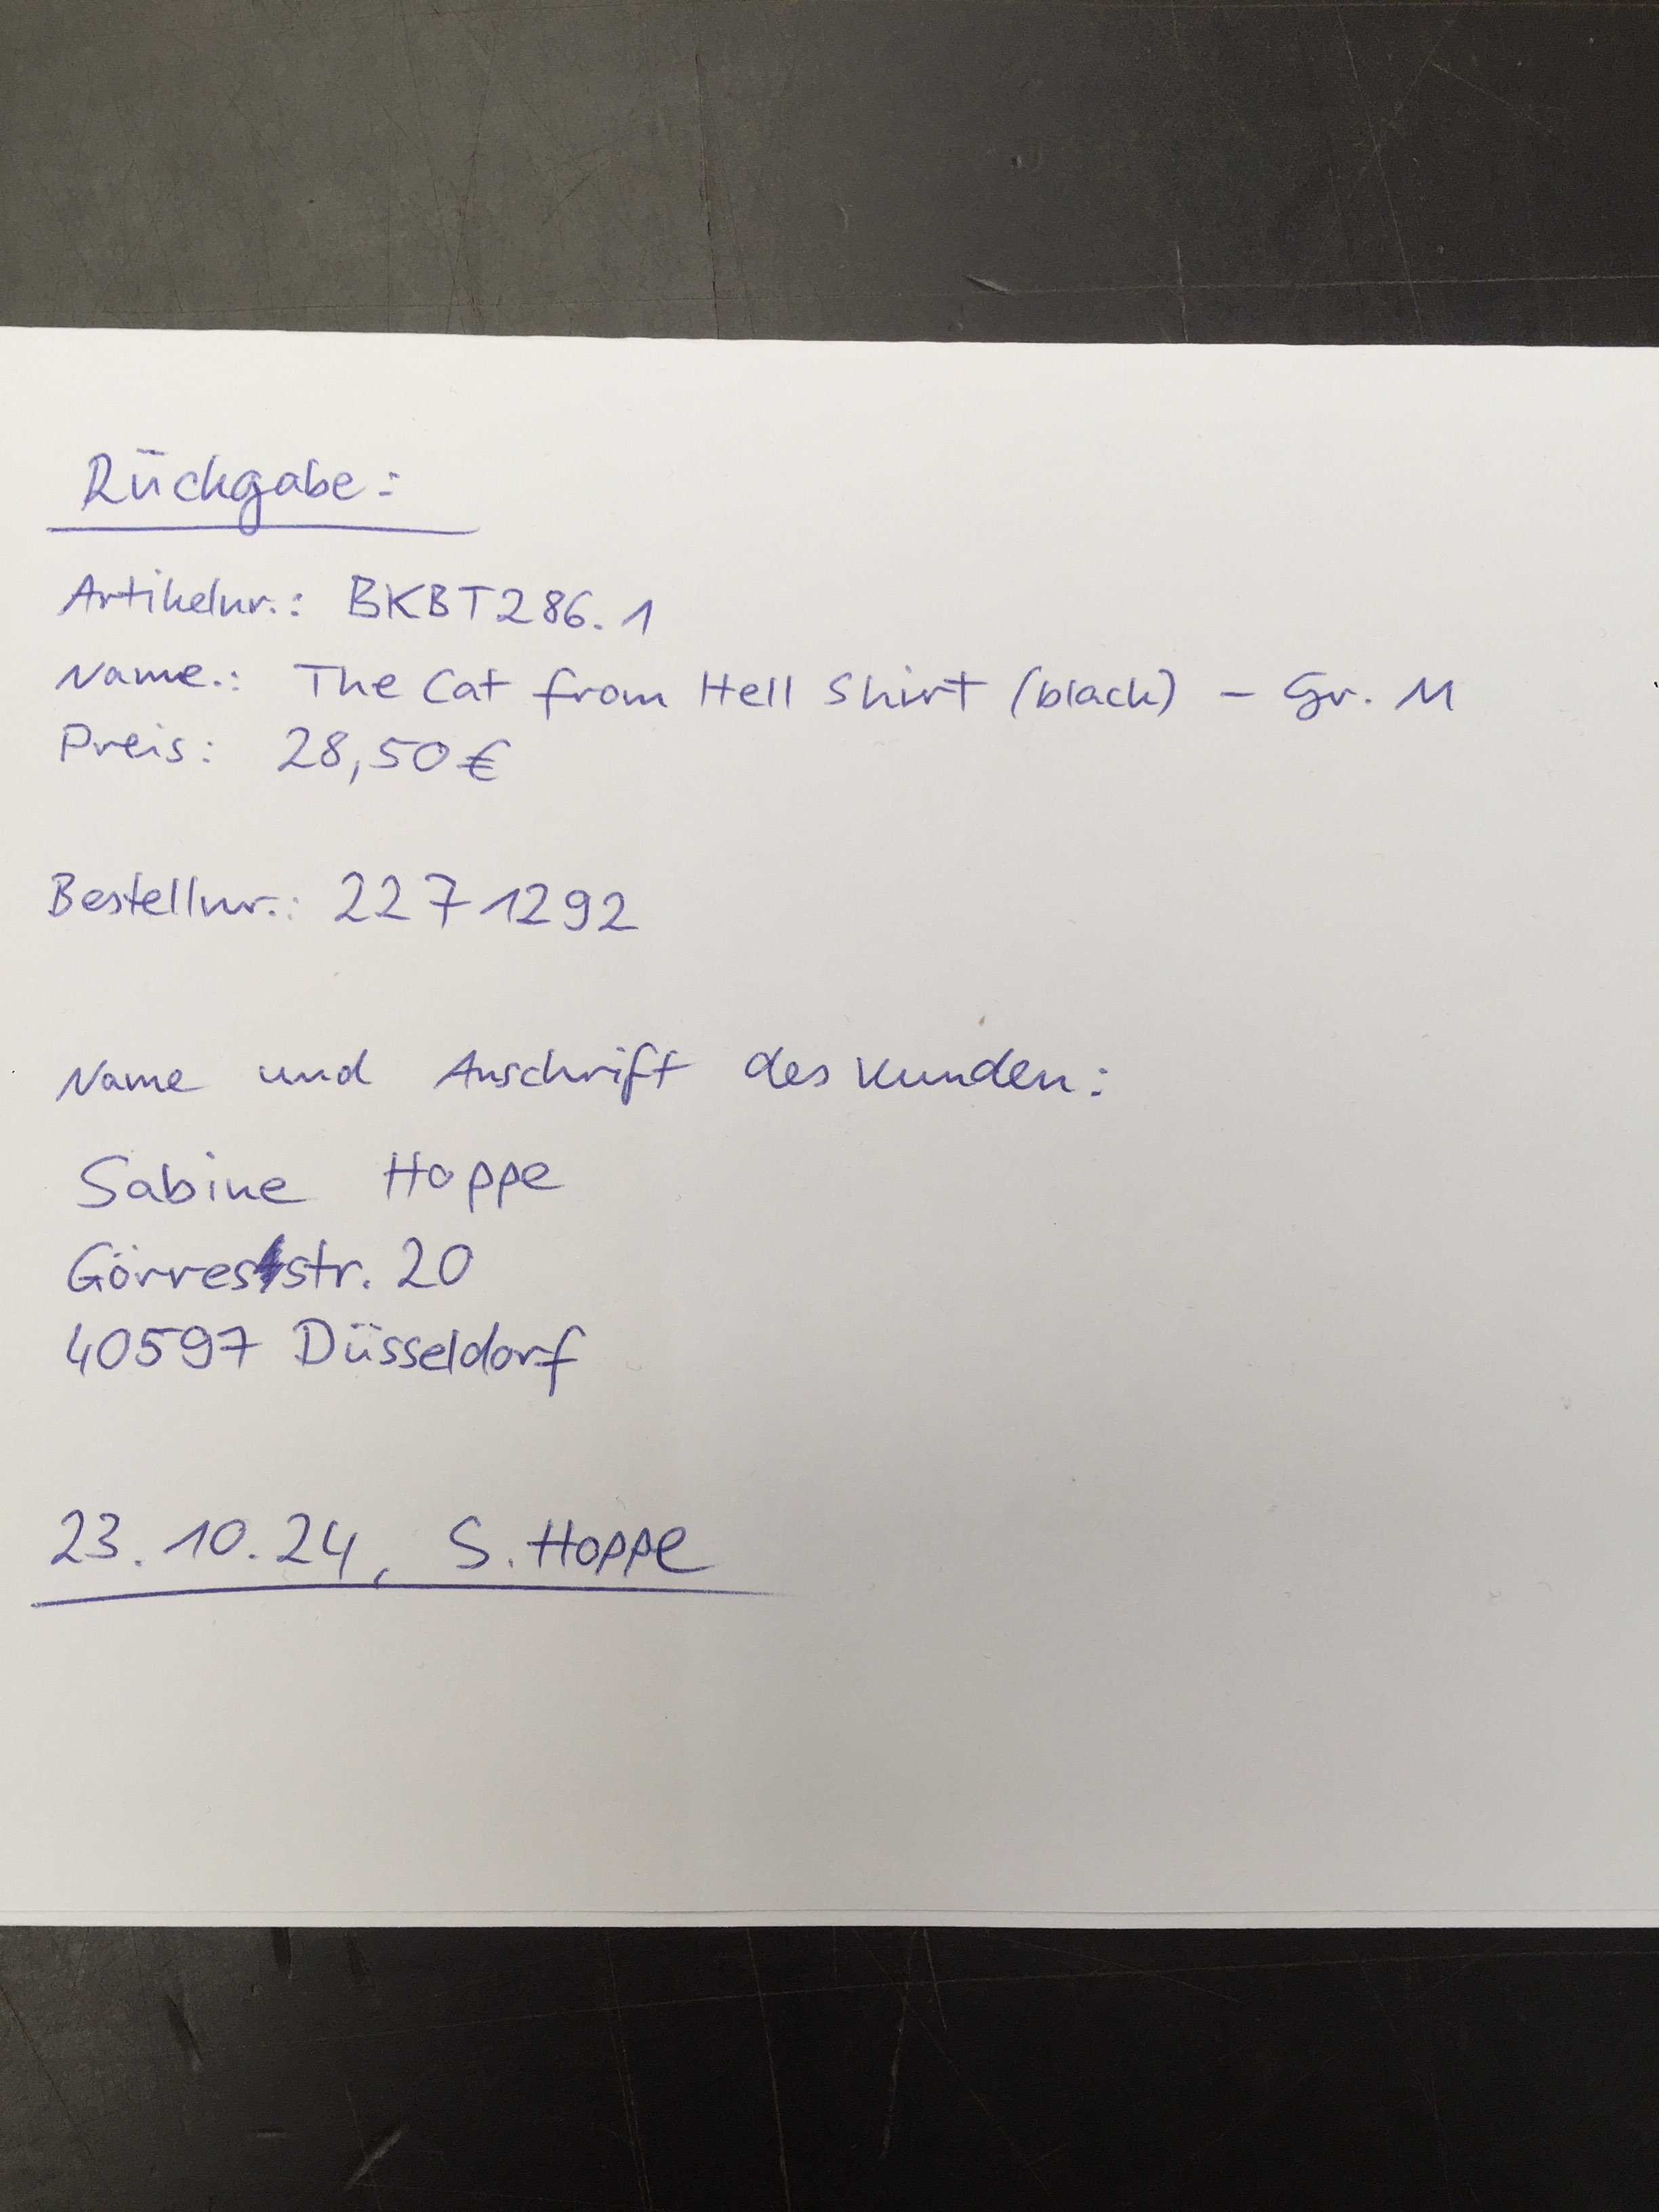 Rückgabe:
Artikelnr.: BKBT286.1
Name.: The Cat from Hell Shirt (black) - Gr. M
Preis: 28,50€
Bestellnr.: 2271292
Name und Anschrift des Kunden:
Sabine Hoppe
Görresstr. 20
40597 Düsseldorf
23.10.24, S. Hoppe